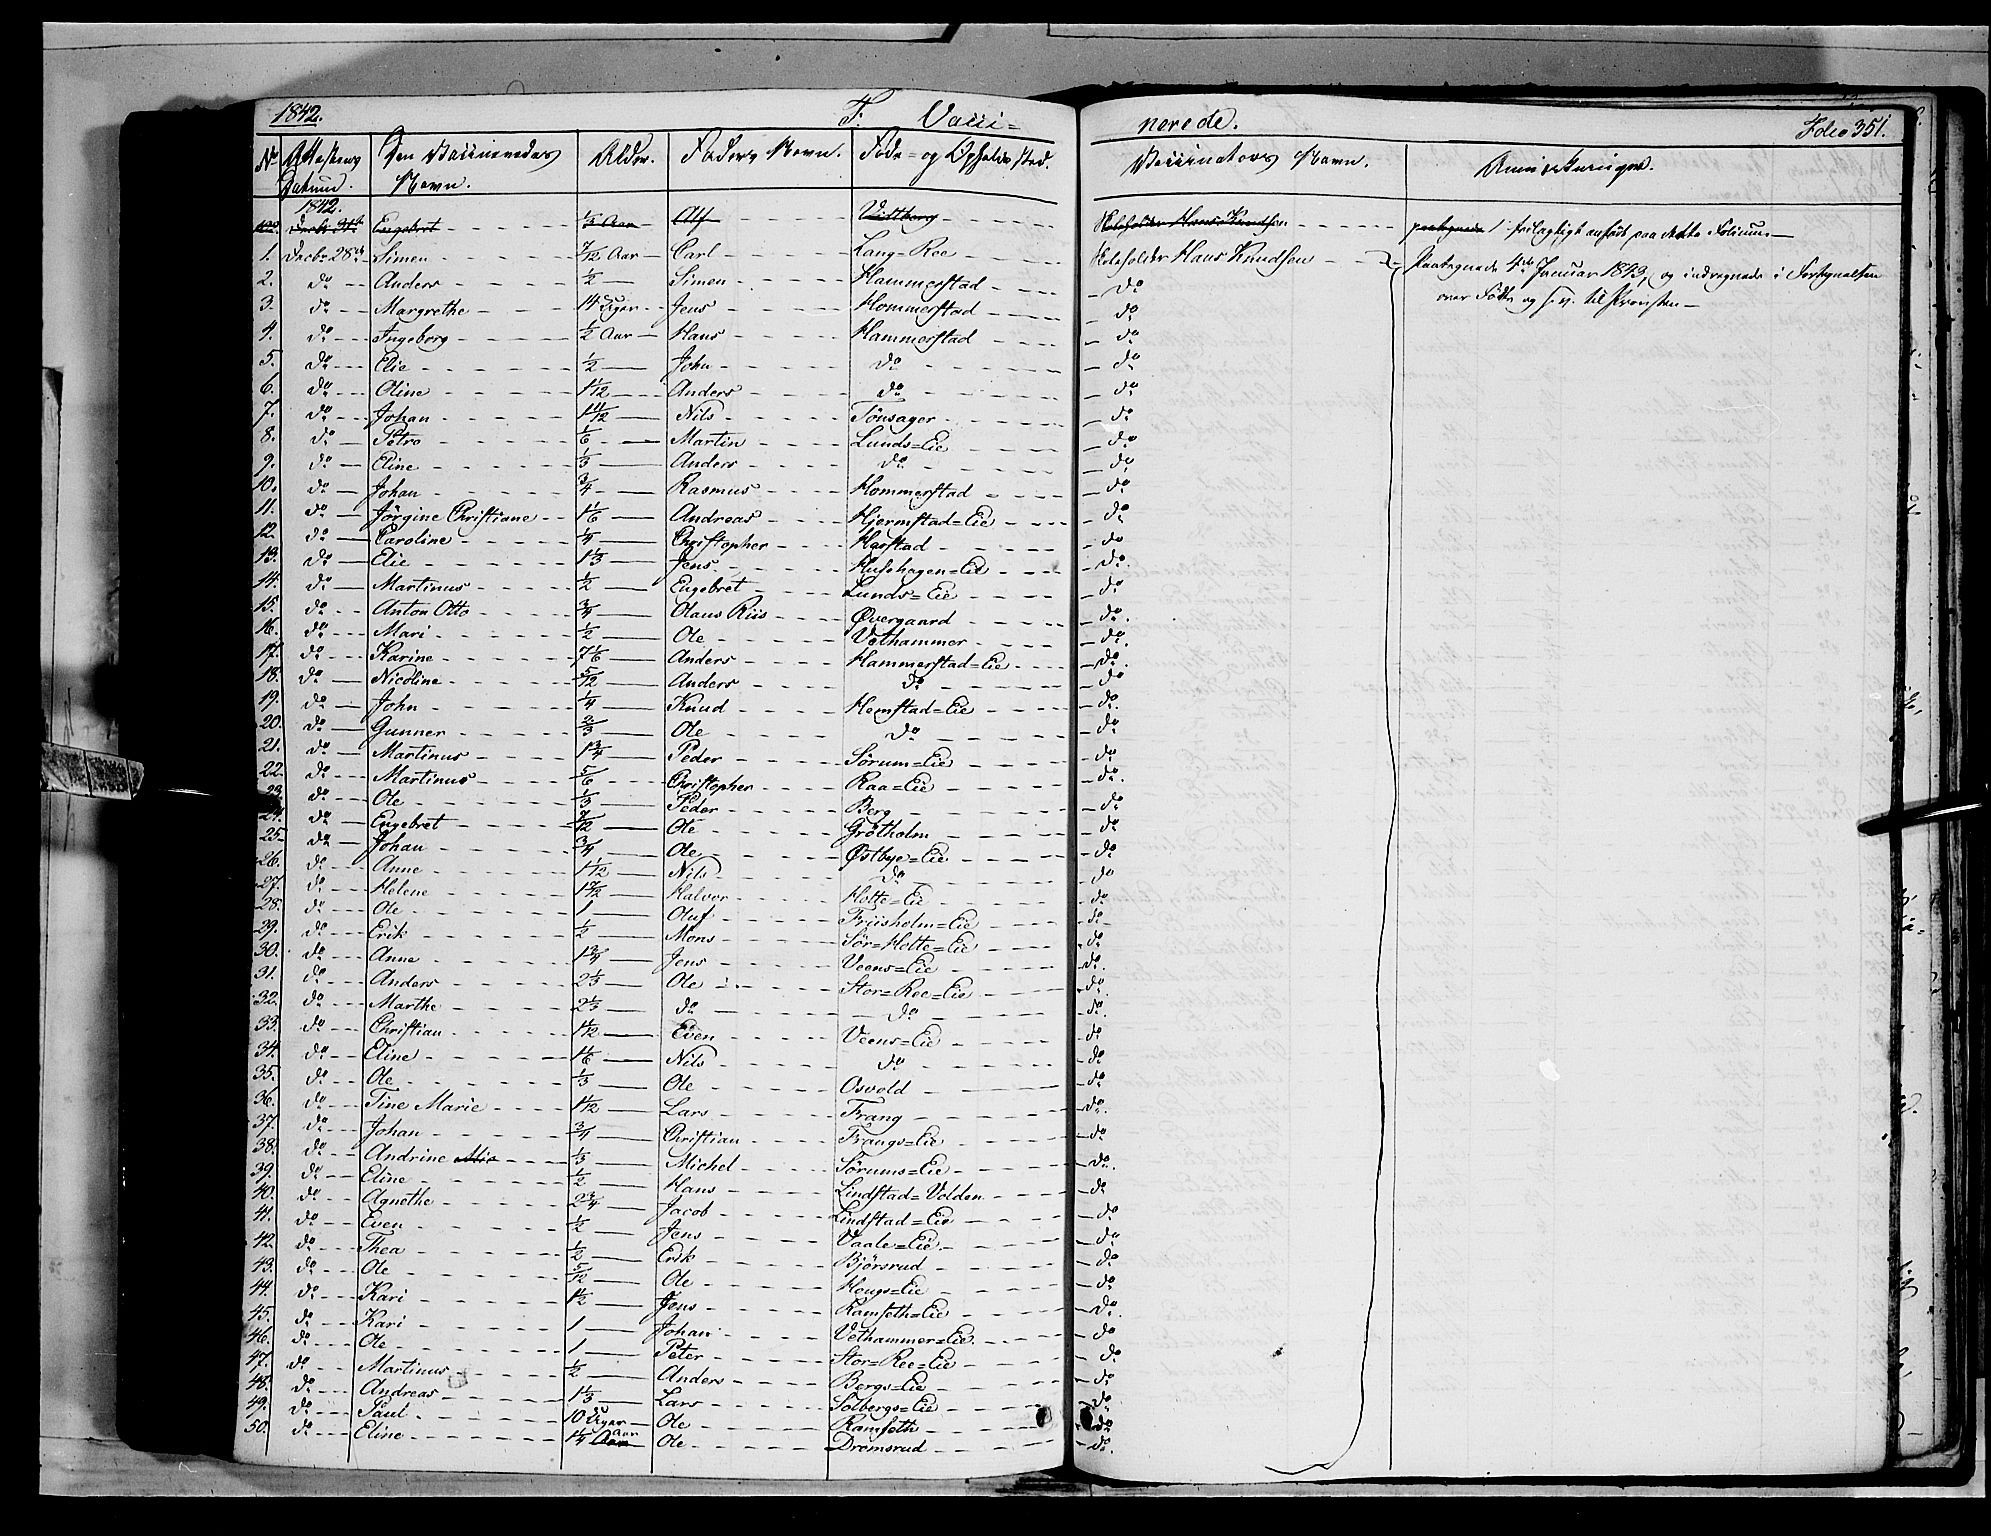 1842. F. Vacci=
nerede. Folio 351.
No Attestens Datum. Den Vaccineredes Navn. Alder. Faders Navn. Føde- og Opholds Sted. Vaccinators Navn. Anmærkninger.
1842.
Decbr 31te Engebret 1/3 Aar Alf Vestberg Klokker Hans Knudsen feilagtigt anført paa dette Folium
1. Decbr 28de Simen 7/12 Aar Carl Lang=Ree Hans Knudsen Paategnede 4de Januar 1843, og indtegnede i Fortegnelsen
2. do Anders 1/2 Simen Hammerstad do over Fødte og til Provsten
3. do Margrethe 14 Uger Jens Hommerstad do
4. do Ingeborg 1/2 Aar Hans Hammerstad do
5. do Elie 1/2 John do do
6. do Oline 1 1/12 Anders do do
7. do Johan 1 11/12 Nils Tønsager do
8. do Petra 1/6 Martin Lunds=Eie do
9. do Eline 1/3 Anders do do
10. do Johan 3/4 Rasmus Hommerstad do
11. do Jörgine Christiane 1 1/6 Andreas Hjermstad=Eie do
12. do Caroline 1/4 Christopher Harstad do
13. do Elie 1 1/3 Jens Husehagen=Eie do
14. do Martinus 1/2 Engebret Lunds=Eie do
15. do Anton Otto 3/4 Olaus Riis Øvergaard do
16. do Mari 1/2 Ole Vethammer do
17. do Karine 7 1/6 Anders Hammerstad=Eie do
18. do Nicoline 5/12 Anders do do
19. do John 1/4 Knud Hemstad=Eie do
20. do Gunner 2/3 Ole do do
21. do Martinus 1 3/4 Peder Sörum=Eie do
22. do Martinus 5/6 Christopher Raa=Eie do
23. do Ole 1/3 Peder Berg do
24. do Engebret /12 Ole Grötholm do
25. do Johan 3/4 Ole Østbye=Eie do
26. do Anne 1 1/12 Nils do do
27. do Helene 1 /12 Halvor Holte=Eie do
28. do Ole 1 Oluf Friisholm=Eie do
29. do Erik 1/2 Mons Sör=Holte=Eie do
30. do Anne 1 3/4 Jens Veens=Eie do
31. do Anders 2 1/3 Ole Stor=Ree=Eie do
32. do Marthe 2 1/3 do do do
33. do Christian 1 1/12 Even Veens=Eie do
34. do Eline 1 1/6 Nils do do
35. do Ole 1/3 Ole Osvold do
36. do Tine Marie 1 1/12 Lars Frang do
37. do Johan 3/4 Christian Frangs=Eie do
38. do Andrine 1/3 Michel Sörums=Eie do
39. do Eline 1/2 Hans Lindstad=Volden do
40. do Agnethe 2 3/4 Jacob Lindstad=Eie do
41. do Even 1/2 Jens Vaale=Eie do
42. do Thea 1/2 Erik Björsrud do
43. do Ole 5/12 Ole Hougs=Eie do
44. do Kari 1 1/2 Jens Ramseth=Eie do
45. do Kari 1 Johan Vethammer=Eie do
46. do Ole 1 Peter Stor=Ree=Eie do
47. do Martinus 1/2 Anders Bergs=Eie do
48. do Andreas 1 1/3 Lars Solbergs=Eie do
49. do Paul 10 Uger Ole Ramseth do
50. do Eline 1 1/4 Aar Ole Dremsrud do